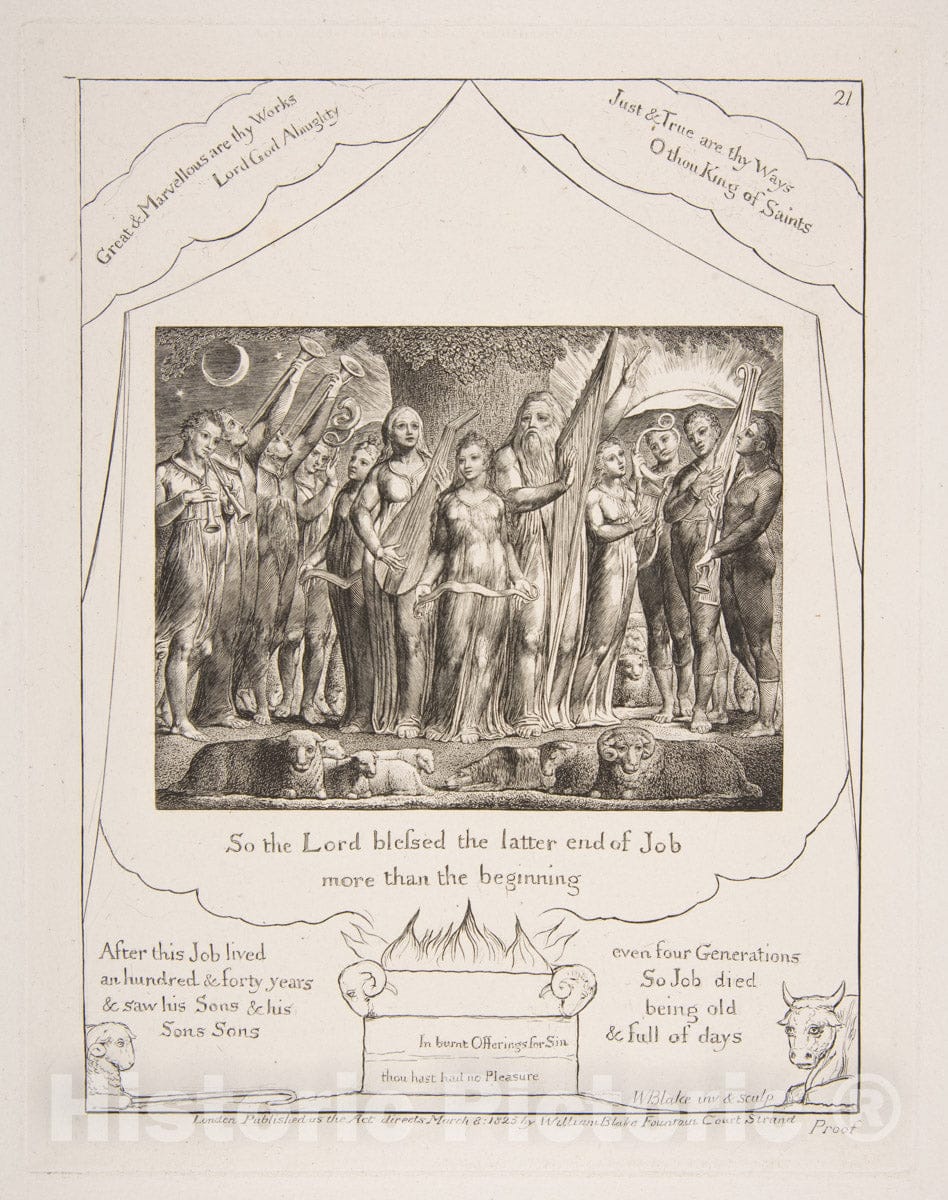 Great & Marvellous are thy Works
Lord God Almighty
21
Just & True are thy Ways
O thou King of Saints
So the Lord bleſsed the latter end of Job
more than the beginning
After this Job lived
an hundred & forty years
& saw his Sons & his
Sons Sons
even four Generations
So Job died
being old
& full of days
In burnt Offerings for Sin
thou hast had no Pleasure
WBlake inv & sculp
London Published as the Act directs March 8: 1825 by William Blake Fountain Court Strand
Proof
Historic Pictoric ®